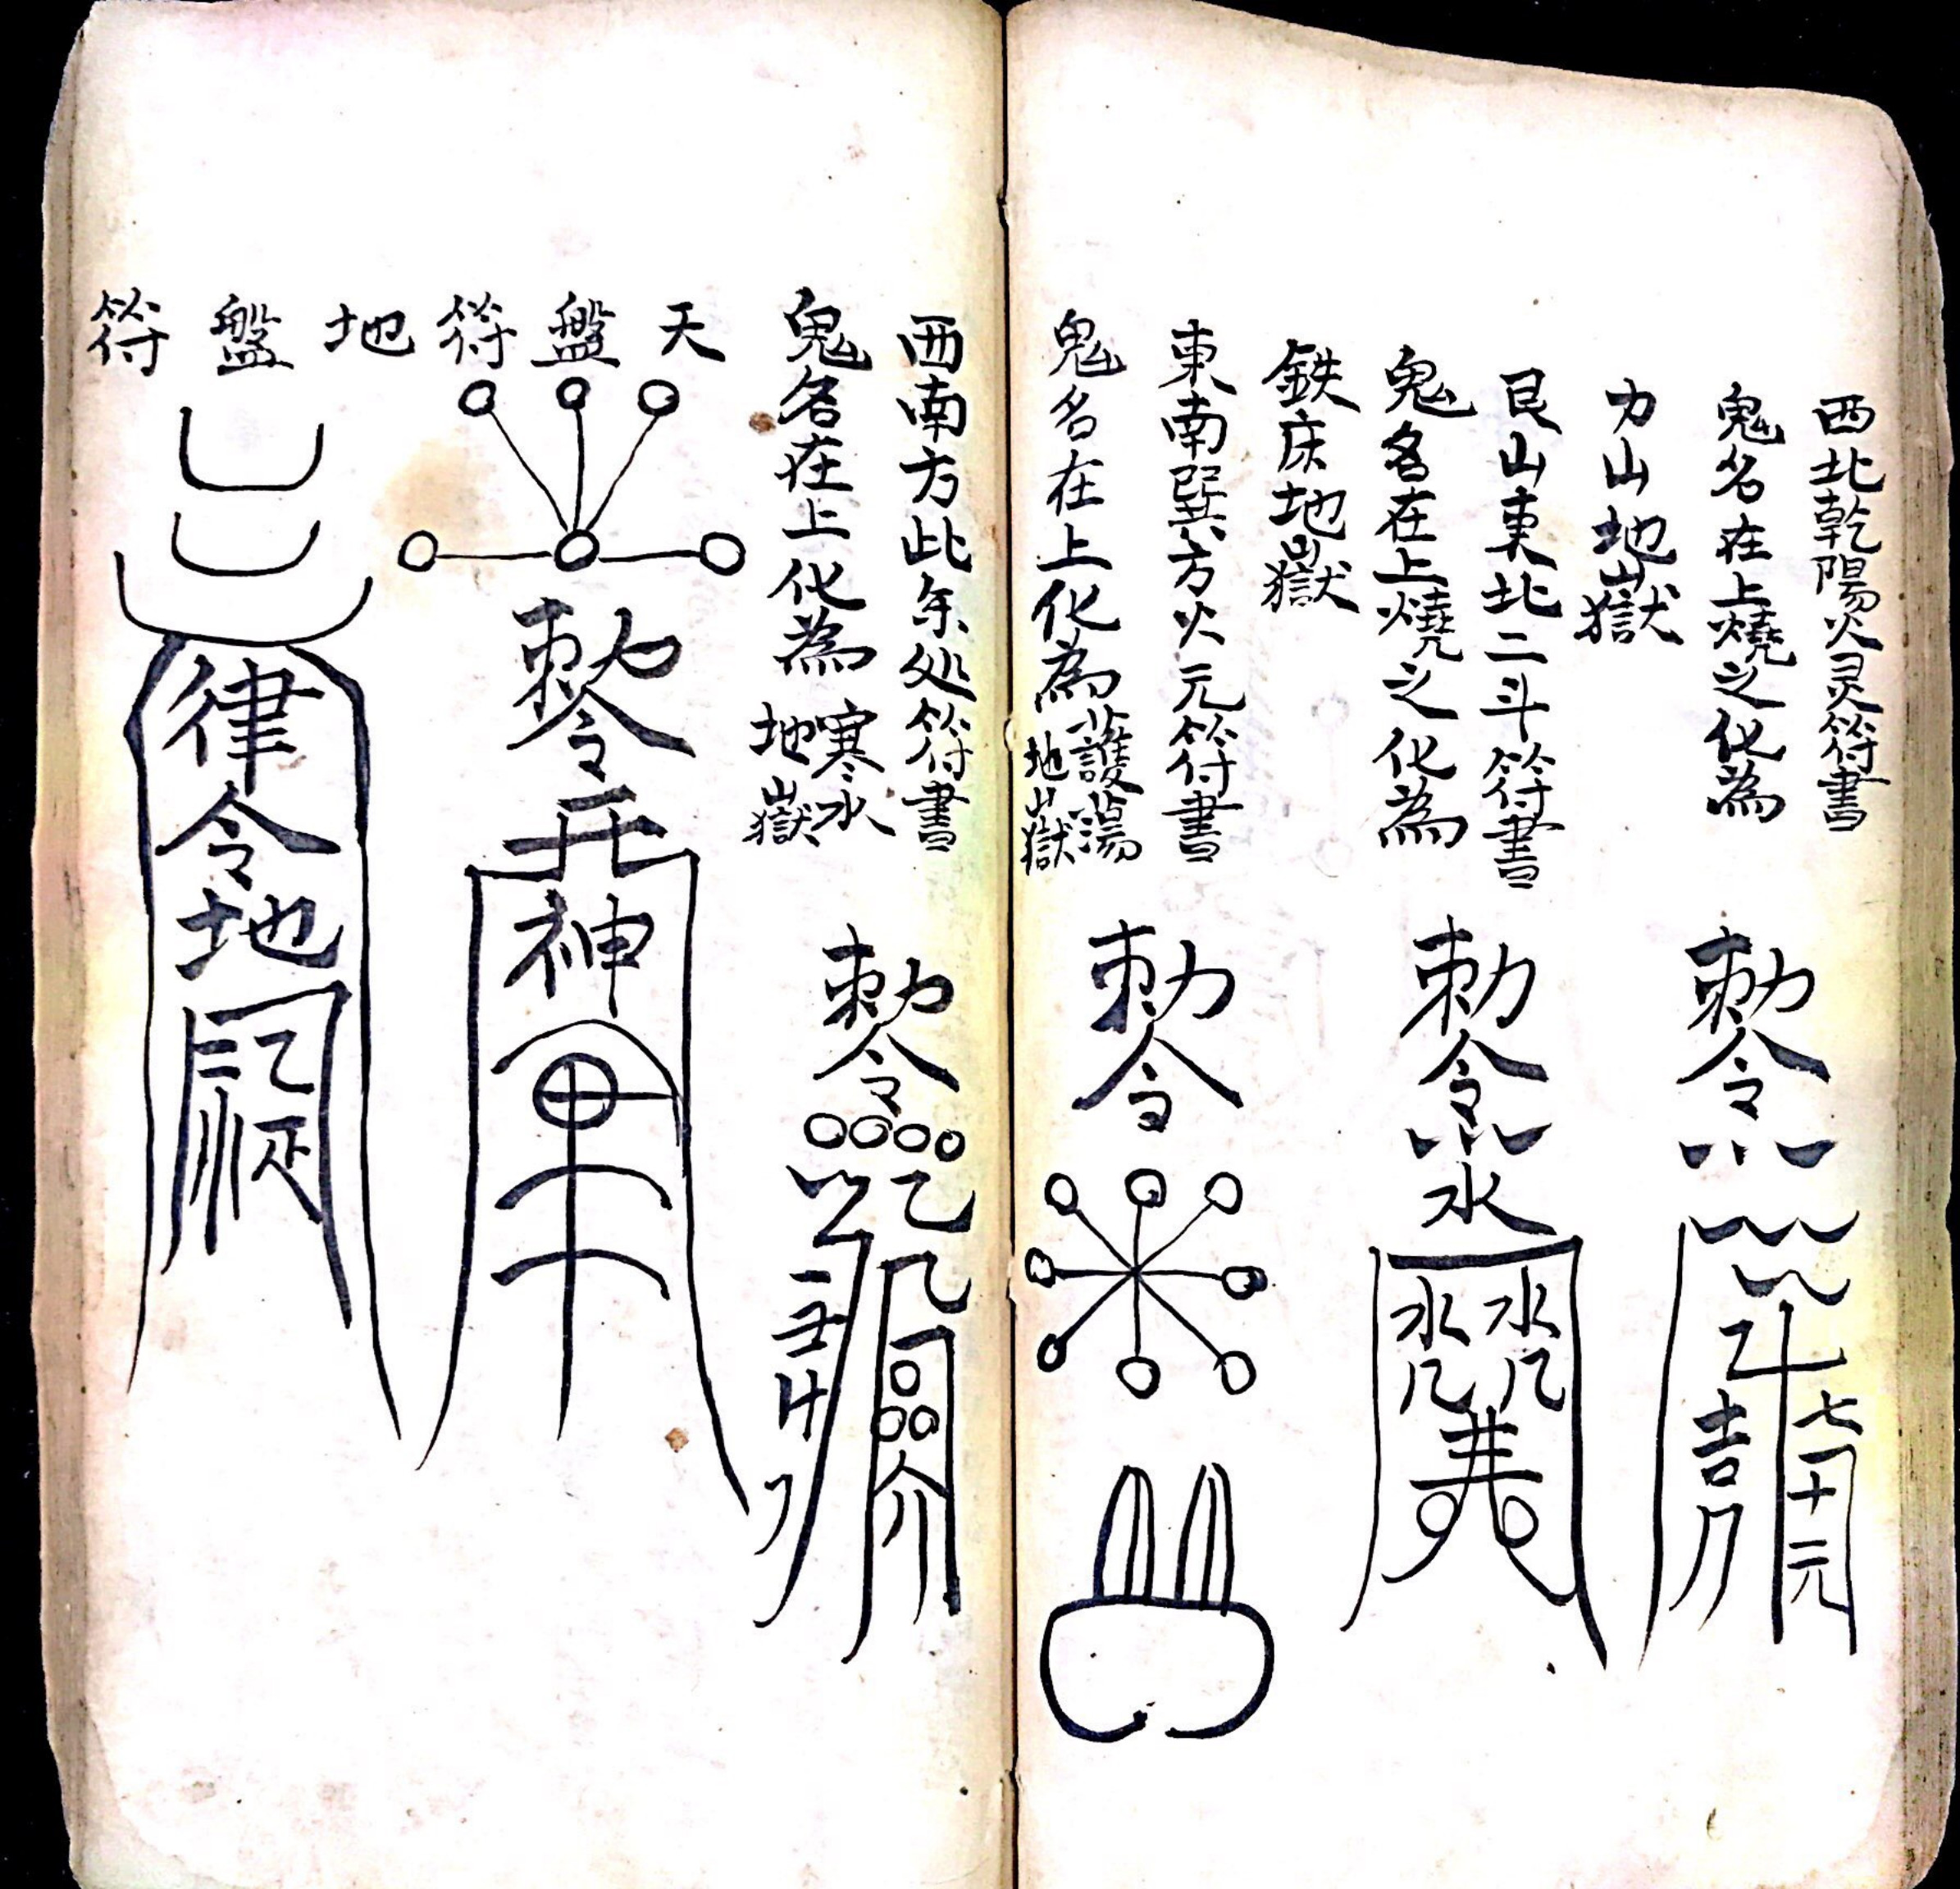 西北乾陽火灵符書
鬼名在上燒之化為
刀山地獄
艮山東北二斗符書
鬼名在上燒之化為
鉄床地獄
東南巽方火元符書
鬼名在上化為
護湯
地獄
西南方此年处符書
鬼名在上化為
寒冰
地獄
天盤符
地盤符
勅令
七十元
吉
勅令
水
水水
井
勅令
勅令
勅令
神
律令地